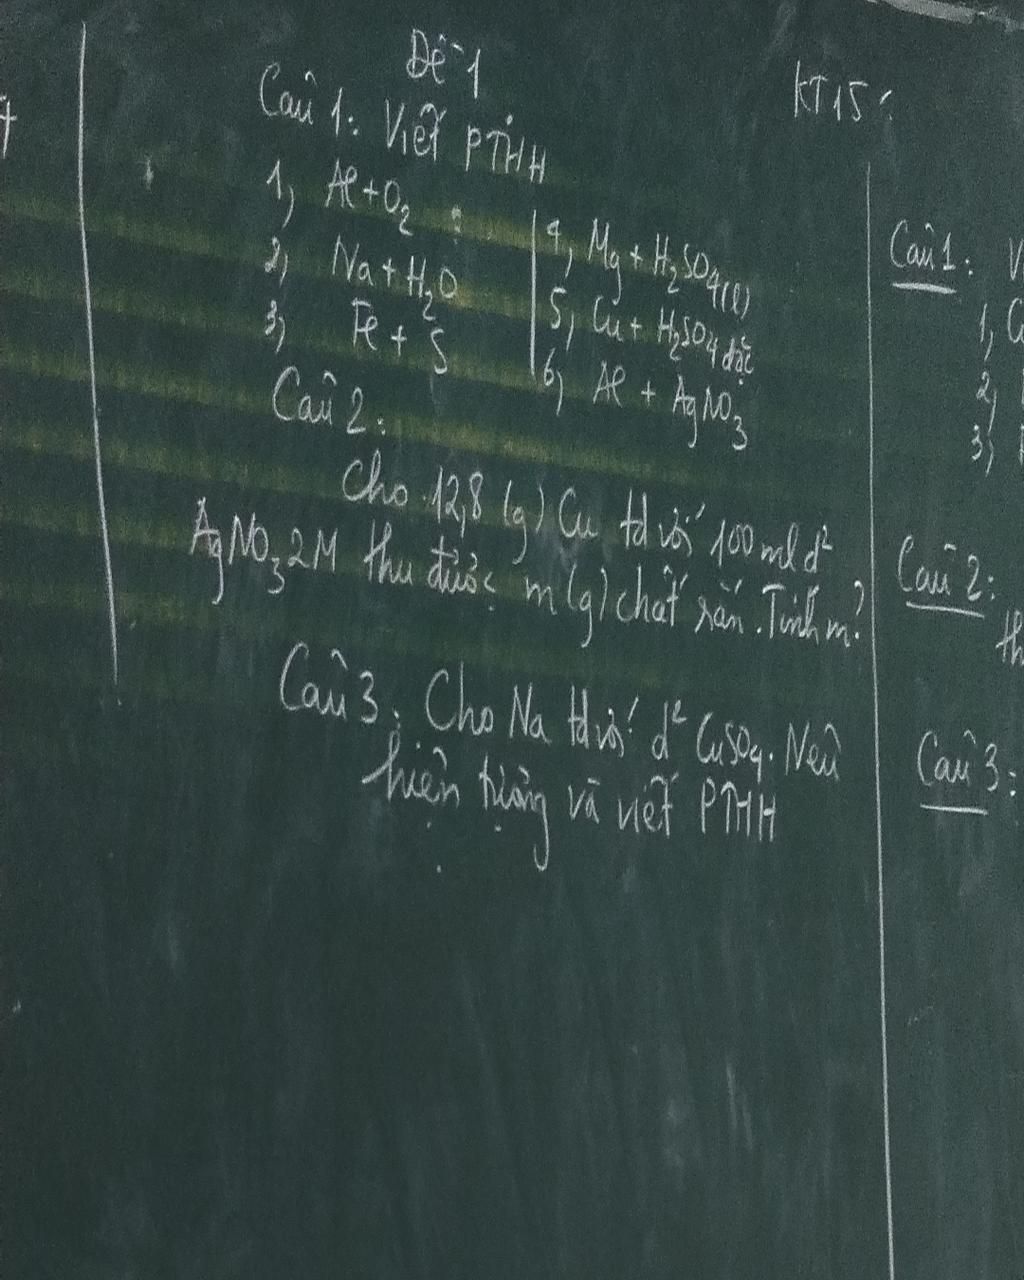 Đề 1
KT 15'
Câu 1: Viết PTHH
1, Al + O2
2, Na + H2O
3, Fe + S
4, Mg + H2SO4(l)
5, Cu + H2SO4 đặc
6, Al + AgNO3
Câu 2:
Cho 12,8 (g) Cu td với 100 ml d²
AgNO3 2M thu được m (g) chất rắn. Tính m?
Câu 3: Cho Na td với d² CuSO4. Nêu
hiện tượng và viết PTHH
Câu 1:
1,
2,
3,
Câu 2:
Câu 3: